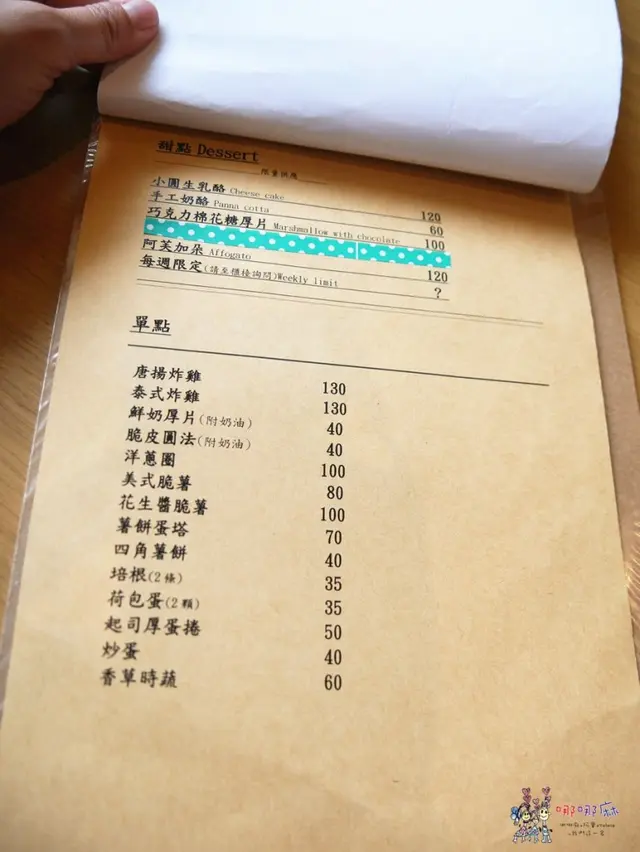 甜點 Dessert
限量供應
小圓生乳酪 Cheese cake 120
手工奶酪 Panna cotta 60
巧克力棉花糖厚片 Marshmallow with chocolate 100
阿芙加朵 Affogato 120
每週限定(請至櫃檯詢問)Weekly limit ?
單點
唐揚炸雞 130
泰式炸雞 130
鮮奶厚片(附奶油) 40
脆皮圓法(附奶油) 40
洋蔥圈 100
美式脆薯 80
花生醬脆薯 100
薯餅蛋塔 70
四角薯餅 40
培根(2條) 35
荷包蛋(2顆) 35
起司厚蛋捲 50
炒蛋 40
香草時蔬 60
哪哪麻